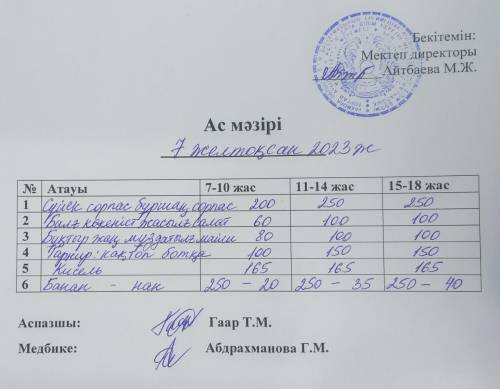 Бекітемін:
Мектеп директоры
Айтбаева М.Ж.
Ас мәзірі
7 желтоқсан 2023ж
№ Атауы 7-10 жас 11-14 жас 15-18 жас
1 Сүйек сорпас бұршақ сорпас 200 250 250
2 көкөніст салат 60 100 100
3 80 100 100
4 Гарнир: ботқа 100 150 150
5 Кисель 165 165 165
6 Банан - нан 250 - 20 250 - 35 250 - 40
Аспазшы: Гаар Т.М.
Медбике: Абдрахманова Г.М.